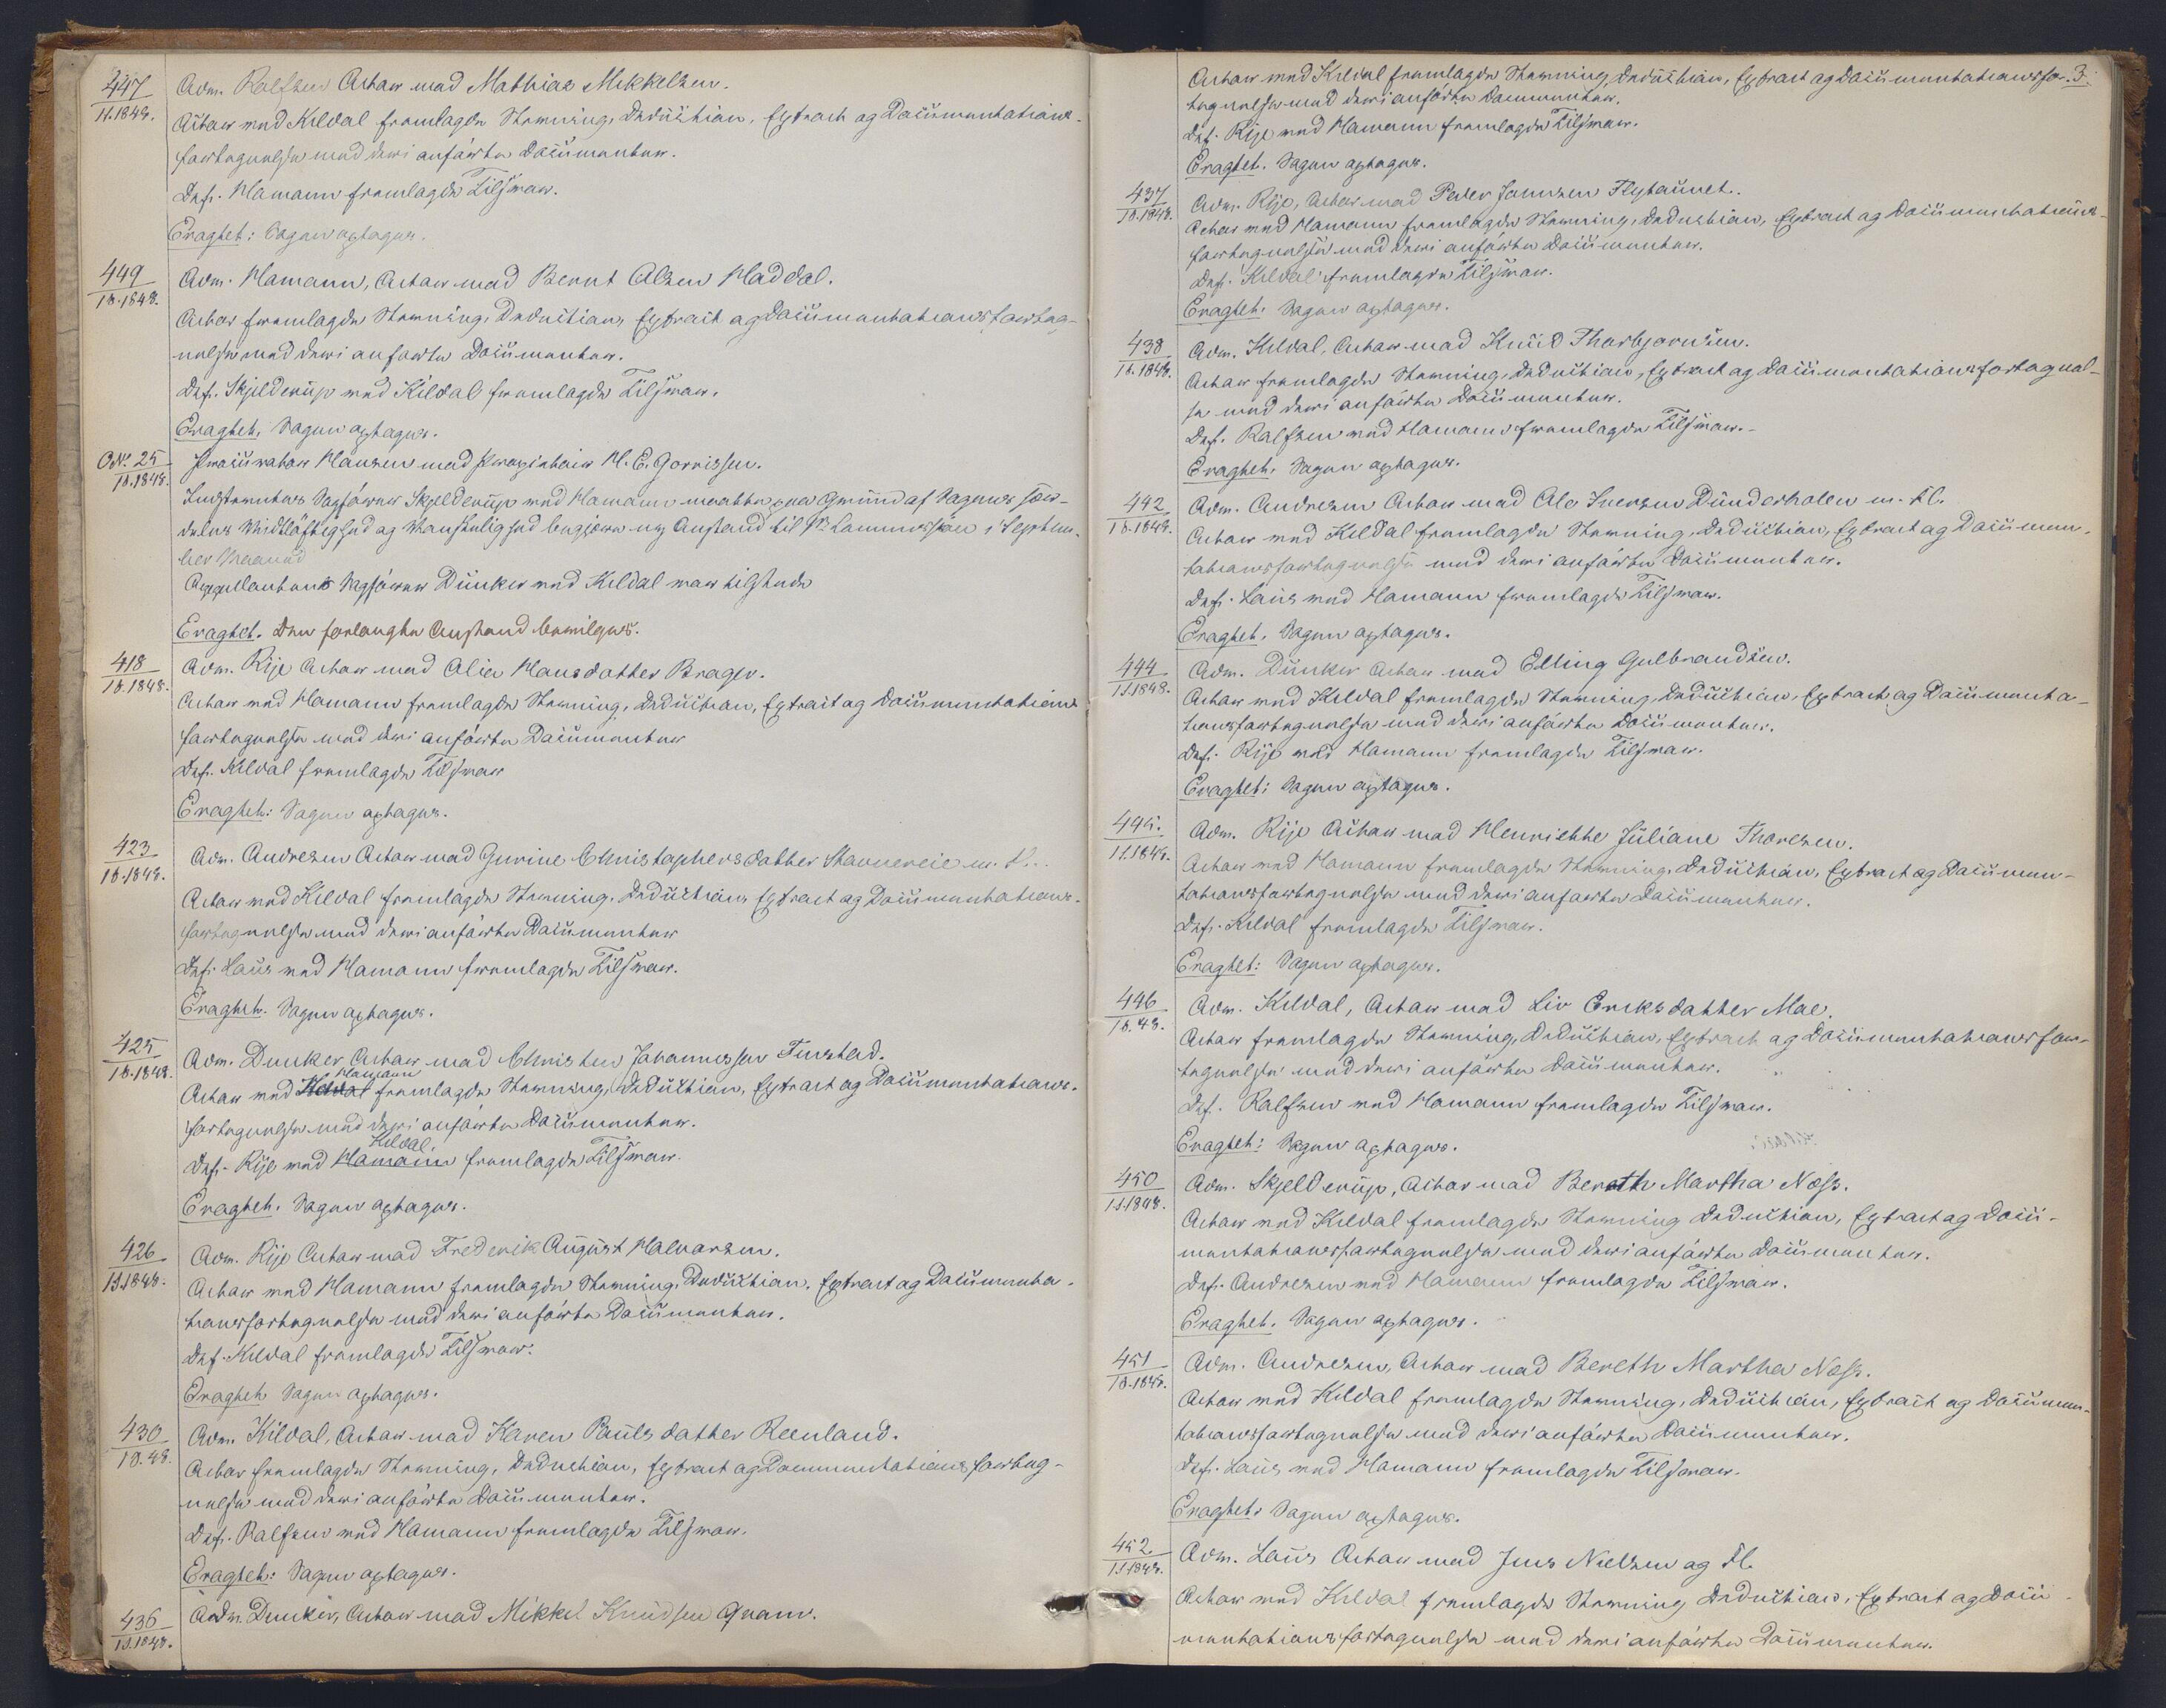 447
11.1848.
Adv. Rolfsen Actor mod Mathias Mikkelsen.
Actor ved Kildal fremlagde Stævning, Deduction, Extract og Documentations-
fortegnelse med deri anførte Documenter.
Def. Hamann fremlagde Tilsvar.
Eragtet: Sagen optages.
449
1 b. 1848.
Adv. Hamann, Actor mod Bernt Olsen Haddal.
Actor fremlagde Stævning, Deduction, Extract og Documentationsforteg-
nelse med deri anførte Documenter.
Def. Skjelderup ved Kildal fremlagde Tilsvar.
Eragtet. Sagen optages.
O No. 25
1 b. 1848.
Procurator Hansen mod Proprietair H. E. Gorrissen.
Indstevntes Sagfører Skjelderup ved Hamann maatte paa Grund af Sagens sær-
deles Vidtløftighed og Vanskelighed begjære ny Anstand til 1ste Lammersdag i Septem-
ber Maaned
Appellantens Sagfører Dunker ved Kildal var tilstede
Eragtet. Den forlangte Anstand bevilges.
418
1 b. 1848.
Adv. Rije Actor mod Olia Hansdatter Brager.
Actor ved Hamann fremlagde Stævning, Deduction, Extract og Documentations
fortegnelse med deri anførte Documenter
Def. Kildal fremlagde Tilsvar
Eragtet: Sagen optages.
423
1 b. 1848.
Adv. Andresen Actor mod Gurine Christophersdatter Stavnereie m. Fl.
Actor ved Kildal fremlagde Stævning, Deduction, Extract og Documentations-
fortegnelse med deri anførte Documenter
Def. Laus ved Hamann fremlagde Tilsvar.
Eragtet. Sagen optages.
425
1 b. 1848.
Adv. Dunker, Actor mod Christen Johannessen Tuestad.
Hamann
Actor ved Kildal fremlagde Stævning, Deduction, Extract og Documentations-
fortegnelse med deri anførte Documenter.
Kildal
Def. Rije ved Hamann fremlagde Tilsvar.
Eragtet. Sagen optages.
426
1 S. 1848.
Adv. Rije Actor mod Frederik August Halvorsen.
Actor ved Hamann fremlagde Stævning, Deduction, Extract og Documenta-
tionsfortegnelse med deri anførte Documenter.
Def. Kildal fremlagde Tilsvar.
Eragtet Sagen optages.
430
1 b. 48.
Adv. Kildal, Actor mod Karen Paulsdatter Reenland.
Actor fremlagde Stævning, Deduction, Extract og Documentationsforteg-
nelse med deri anførte Documenter.
Def. Rolfsen ved Hamann fremlagde Tilsvar.
Eragtet: Sagen optages.
436
1 S. 1848.
Adv. Dunker, Actor mod Mikkel Knudsen Qvam.
3.
Actor ved Kildal fremlagde Stævning, Deduction, Extract og Documentationsfor-
tegnelse med deri anførte Documenter.
Def. Rije ved Hamann fremlagde Tilsvar.
Eragtet. Sagen optages.
437
1 b. 1848.
Adv. Rije, Actor mod Peder Jonsen Flytaunet.
Actor ved Hamann fremlagde Stævning, Deduction, Extract og Documentations-
fortegnelse med deri anførte Documenter.
Def. Kildal fremlagde Tilsvar.
Eragtet. Sagen optages.
438
1 b. 1848.
Adv. Kildal, Actor mod Knud Thorbjornsen.
Actor fremlagde Stævning, Deduction, Extract og Documentationsfortegnel-
se med deri anførte Documenter.
Def. Rolfsen ved Hamann fremlagde Tilsvar.
Eragtet. Sagen optages.
442
1 b. 1848.
Adv. Andresen Actor mod Ole Iversen Dunderholen m. Fl.
Actor ved Kildal fremlagde Stævning, Deduction, Extract og Documen-
tationsfortegnelse med deri anførte Documenter.
Def. Laus ved Hamann fremlagde Tilsvar.
Eragtet. Sagen optages.
444
1 S. 1848.
Adv. Dunker Actor mod Elling Gulbrandsen.
Actor ved Kildal fremlagde Stævning, Deduction, Extract og Documenta-
tionsfortegnelse med deri anførte Documenter.
Def. Rije ved Hamann fremlagde Tilsvar.
Eragtet: Sagen optages.
445.
1 S. 1848.
Adv. Rije Actor mod Henriette Juliane Thoresen.
Actor ved Hamann fremlagde Stævning, Deduction, Extract og Documen-
tationsfortegnelse med deri anførte Documenter.
Def. Kildal fremlagde Tilsvar.
Eragtet: Sagen optages.
446
1 b. 48.
Adv. Kildal, Actor mod Liv Eriksdatter Moe.
Actor fremlagde Stævning, Deduction, Extract og Documentationsfor-
tegnelse med deri anførte Documenter.
Def. Rolfsen ved Hamann fremlagde Tilsvar.
Eragtet: Sagen optages.
450
1 S. 1848.
Adv. Skjelderup, Actor mod Bereth Martha Næss.
Actor ved Kildal fremlagde Stævning Deduction, Extract og Docu-
mentationsfortegnelse med deri anførte Documenter.
Def. Andresen ved Hamann fremlagde Tilsvar.
Eragtet. Sagen optages.
451
1 b. 1848.
Adv. Andresen, Actor mod Bereth Martha Næss.
Actor ved Kildal fremlagde Stævning, Deduction, Extract og Documen-
tationsfortegnelse med deri anførte Documenter.
Def. Laus ved Hamann fremlagde Tilsvar.
Eragtet: Sagen optages.
452
1 S. 1848.
Adv. Laus Actor mod Jens Nielsen og Fl.
Actor ved Kildal fremlagde Stævning Deduction, Extract og Docu-
mentationsfortegnelse med deri anførte Documenter.